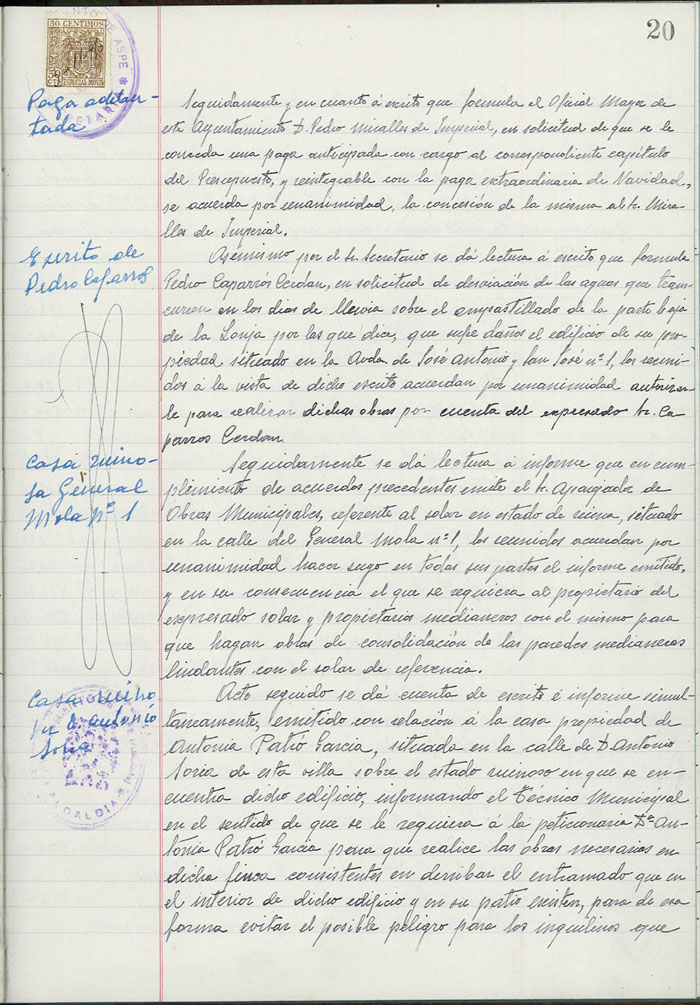 20
50 CENTIMOS
ESPECIAL MOVIL
DE ASPE
Paga adelan-
tada
Seguidamente y en cuanto á escrito que formula el Oficial Mayor de
este Ayuntamiento D. Pedro Miralles de Imperial, en solicitud de que se le
conceda una paga anticipada con cargo al correspondiente capítulo
del Presupuesto, y reintegrable con la paga extraordinaria de Navidad,
se acuerda por unanimidad, la concesión de la misma al Sr. Mira-
lles de Imperial.
Escrito de
Pedro Caparrós
Asimismo por el Sr. Secretario se dá lectura á escrito que formula
Pedro Caparrós Cerdan, en solicitud de desviación de las aguas que trans-
curren en los dias de lluvia sobre el empastillado de la parte baja
de la Lonja por las que dice, que sufre daños el edificio de su pro
piedad situado en la Avda. de José Antonio y San José nº 1, los reuni-
dos á la vista de dicho escrito acuerdan por unanimidad autorizar
le para realizar dichas obras por cuenta del expresado Sr. Ca
parros Cerdan.
Casa ruino-
sa General
Mola nº 1
Seguidamente se dá lectura á informe que en cum-
plimiento de acuerdos precedentes emite el Sr. Aparejador de
Obras Municipales, referente al solar en estado de ruina, situado
en la calle del General Mola nº 1, los reunidos acuerdan por
unanimidad hacer suyo en todas sus partes el informe emitido,
y en su consecuencia el que se requiera al propietario del
expresado solar y propietarios medianeros con el mismo para
que hagan obras de consolidación de las paredes medianeras
lindantes con el solar de referencia.
Casa ruino
sa de Antonio
Soria
ALCALDIA
Acto seguido se dá cuenta de escrito é informe simul-
taneamente, emitido con relación á la casa propiedad de
Antonia Patió Garcia, situada en la calle de D. Antonio
Soria de esta villa sobre el estado ruinoso en que se en-
cuentra dicho edificio, informando el Técnico Municipal
en el sentido de que se le requiera á la peticionaria Dª An-
tonia Patió Garcia para que realice las obras necesarias en
dicha finca consistentes en derribar el entramado que en
el interior de dicho edificio y en su patio existen, para de esa
forma evitar el posible peligro para los inquilinos que